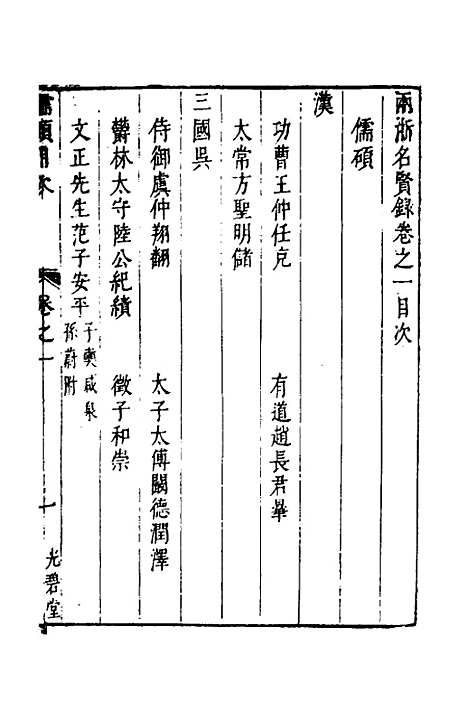 兩浙名賢錄卷之一目次
儒碩
漢
功曹王仲任充 有道趙長君曄
太常方聖明儲
三國吳
侍御虞仲翔翻 太子太傅闞德潤澤
鬱林太守陸公紀績 徵子和崇
文正先生范子安平 子奭咸泉 孫蔚附
儒碩目次 卷之一 一 光碧堂